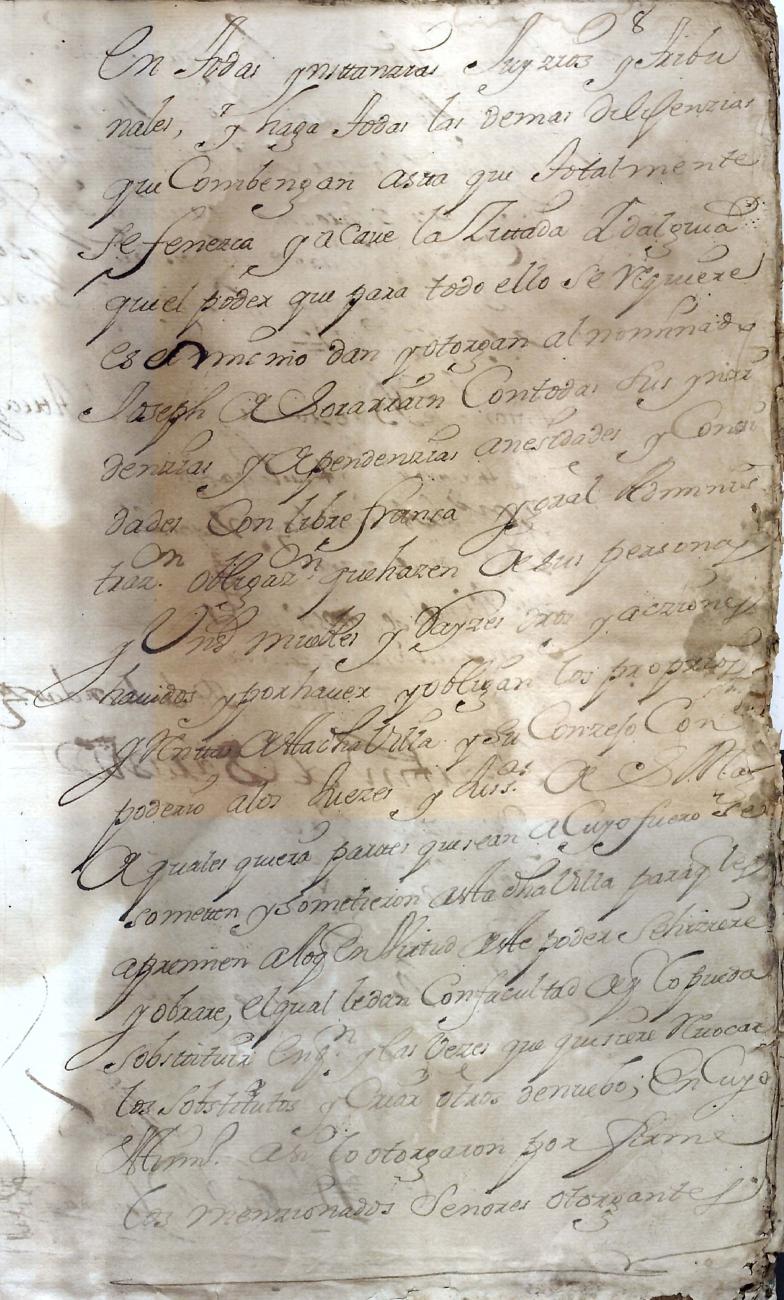 8
En todas ynstanzias Juyzios y tribu
nales, y haga todas las demas dilixenzias
que Combengan asta que totalmente
se fenezca y acave la Zittada Ydalguia
quel poder que para todo ello se rrequiere
es el mismo dan y otorgan al nominado
Joseph de Sorarrain Con todas sus ynzi
denzias y dependenzias anexidades y Conexi
dades Con libre franca y gral Adminis
traz.n obligaz.n que hazen de sus personas
y Vns muebles y Rayzes dros y acziones
havidos y por haver y obligan los proprios
y Rentas desta dha Villa y su Conzejo Con
poderio a los Juezes y Juss.as de S. Mag
de quales quiera partes que sean a Cuyo fuero se
someten y sometieron a esta dha Villa para q les
apremien a lo q En Virtud deste poder se hiziere
y obrare, el qual le dan Con facultad de q lo pueda
sobstituir En q.n y las Vezes que quisiere Revocar
los sobstitutos y Criar otros de nuebo; En Cuyo
tesstim.o asi lo otorgaron por firme
los menzionados Señores otorgantes